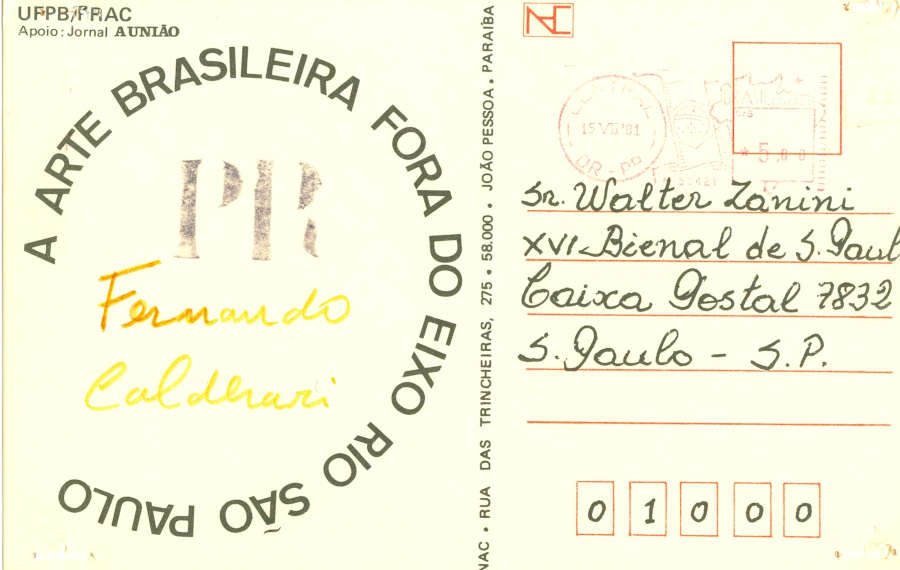 UFPB/PRAC
Apoio: Jornal A UNIÃO
A ARTE BRASILEIRA FORA DO EIXO RIO SÃO PAULO
PR
Fernando
Calderari
NAC • RUA DAS TRINCHEIRAS, 275 • 58.000 • JOÃO PESSOA • PARAÍBA
NAC
15 VII '81
DR - PR
5,00
Sr. Walter Zanini
XVI-Bienal de S. Paul
Caixa Postal 7832
S. Paulo - S.P.
0 1 0 0 0